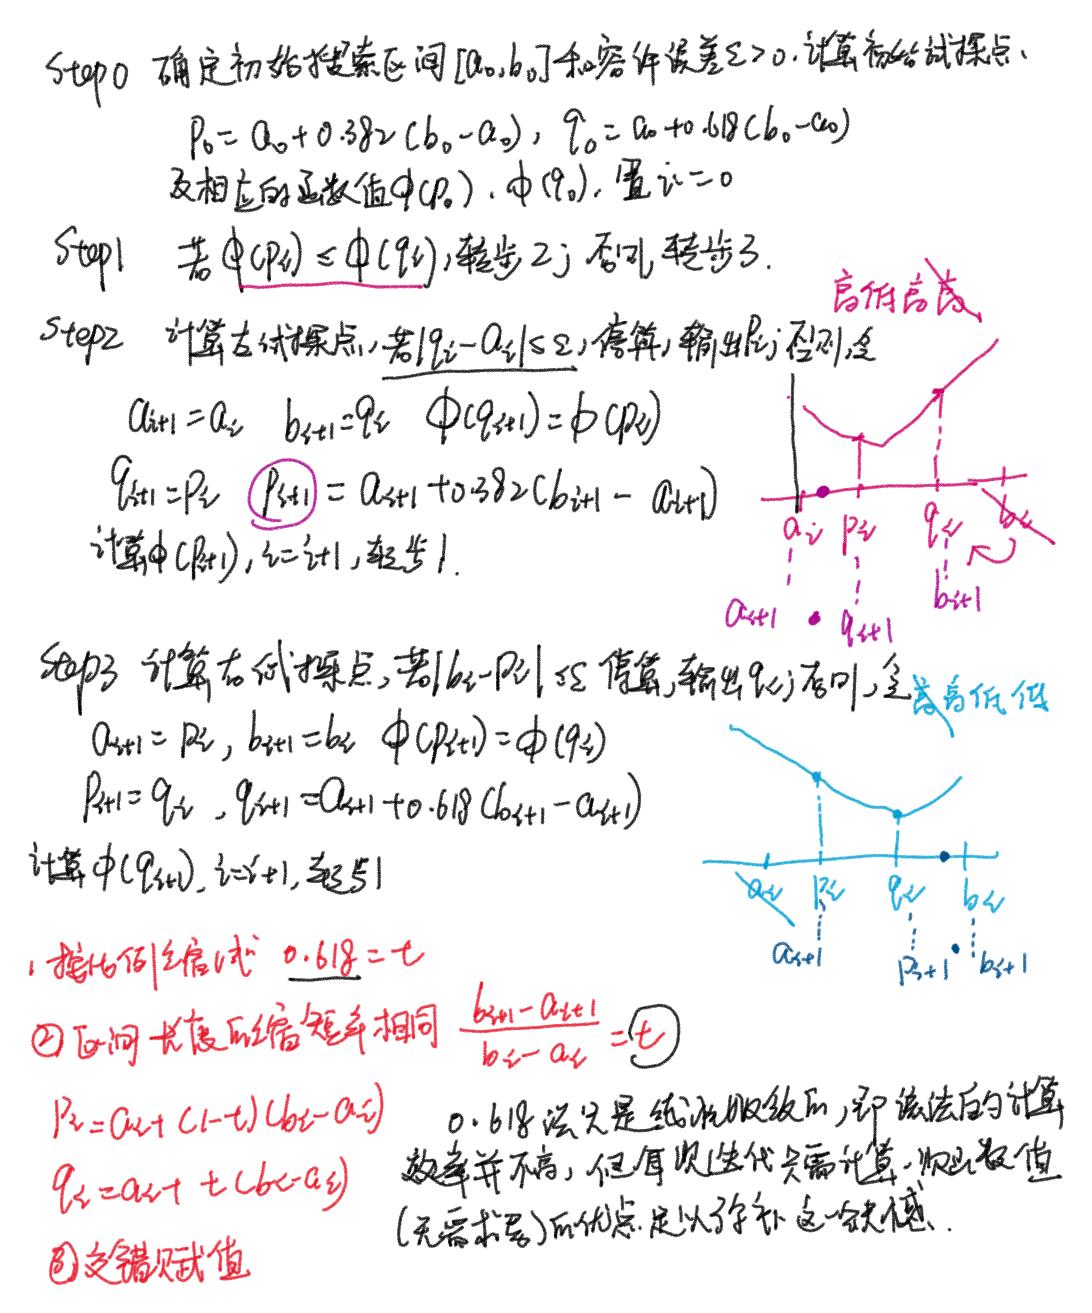 Step0 确定初始搜索区间[a₀,b₀]和容许误差ε>0.计算初始试探点、
p₀=a₀+0.382(b₀-a₀), q₀=a₀+0.618(b₀-a₀)
及相应的函数值φ(p₀).φ(q₀).置i=0
Step1 若φ(pᵢ)≤φ(qᵢ),转步2;否则,转步3.
高低高高
Step2 计算左试探点,若|qᵢ-aᵢ|≤ε,停算,输出pᵢ;否则,令
aᵢ₊₁=aᵢ bᵢ₊₁=qᵢ φ(qᵢ₊₁)=φ(pᵢ)
qᵢ₊₁=pᵢ pᵢ₊₁=aᵢ₊₁+0.382(bᵢ₊₁-aᵢ₊₁)
计算φ(pᵢ₊₁),i=i+1,转步1.
aᵢ pᵢ qᵢ bᵢ
aᵢ₊₁ qᵢ₊₁ bᵢ₊₁
Step3 计算右试探点,若|bᵢ-pᵢ|≤ε 停算,输出qᵢ;否则,令
高高低低
aᵢ₊₁=pᵢ,bᵢ₊₁=bᵢ φ(pᵢ₊₁)=φ(qᵢ)
pᵢ₊₁=qᵢ,qᵢ₊₁=aᵢ₊₁+0.618(bᵢ₊₁-aᵢ₊₁)
计算φ(qᵢ₊₁).i=i+1,转步1
aᵢ pᵢ qᵢ bᵢ
aᵢ₊₁ pᵢ₊₁ bᵢ₊₁
1按比例缩 0.618=t
②区间长度的缩短率相同 (bᵢ₊₁-aᵢ₊₁)/(bᵢ-aᵢ)=t
pᵢ=aᵢ+(1-t)(bᵢ-aᵢ)
qᵢ=aᵢ+t(bᵢ-aᵢ)
③交错赋值
0.618法只是线性收敛的,即该法的计算
效率并不高,但每次迭代只需计算一次函数值
(无需求导)的优点足以弥补这一缺憾.